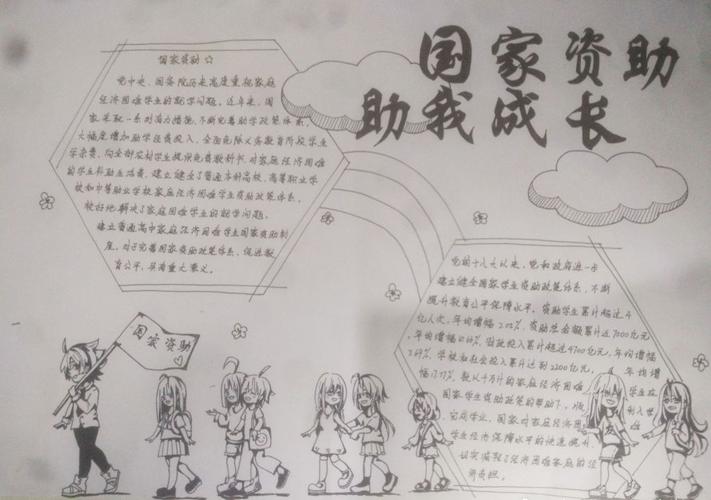 国家资助
助我成长
国家资助☆
党中央、国务院历来高度重视家庭
经济困难学生的就学问题。近年来,国
家采取一系列有力措施,不断完善助学政策体系,
大幅度增加助学经费投入,全面免除义务教育阶段学生
学杂费,向全部农村学生提供免费教科书,对家庭经济困难
的学生补助生活费,建立健全了普通本科高校、高等职业学
校和中等职业学校家庭经济困难学生资助政策体系,
较好地解决了家庭困难学生的就学问题。
建立普通高中家庭经济困难学生国家资助制
度,对于完善国家资助政策体系,促进教
育公平,具有重大意义。
党的十八大以来,党和政府进一步
建立健全国家学生资助政策体系,不断
提升教育公平保障水平。资助学生累计超过
亿人次,年均增幅 资助总金额累计近7000亿元
,年均增幅 财政投入累计超过4700亿元,年均增幅
学校和社会投入累计达到2200亿元,年均增
幅 数以千万计的家庭经济困难学生在
国家学生资助政策的帮助下,顺利入学
完成学业。国家对家庭经济困难
学生经济保障水平的快速提升
切实减轻了经济困难家庭的经
济负担。
国家资助